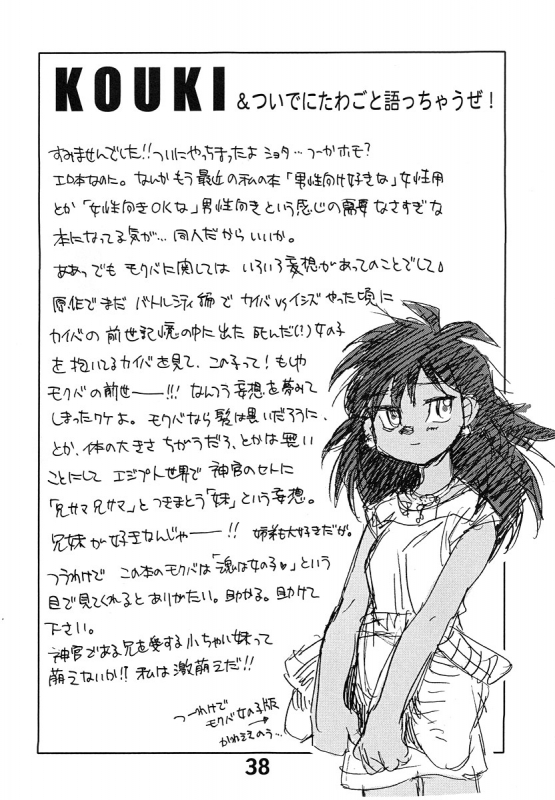 KOUKI &ついでにたわごと語っちゃうぜ!
すみませんでした!!ついにやっちまったよ ショタ…つーかホモ?
エロ本なのに。なんかもう最近の私の本「男性向け好きな」女性用
とか「女性向きOKな」男性向きという感じの需要なさすぎな
本になってる気が…同人だからいいか。
ああっでも モクバに関しては いろいろ妄想があってのことでして♪
原作でまだ バトルシティ編で カイバvsイシズ やった頃に
カイバの 前世記憶の中に出た 死んだ(!)女の子
を 抱いてるカイバを見て、この子って!もしや
モクバの前世——!!! なんつう妄想を夢みて
しまったワケよ。モクバなら髪は黒いだろうに、
とか、体の大きさ ちがうだろ、とかは 置い
ことにして エジプト世界で 神官のセトに
「兄サマ 兄サマ」と つきまとう「妹」という妄想。
兄妹が好きなんじゃ——!! 姉弟も大好きだが。
つうわけで この本のモクバは「魂は女の子♥」という
目で見てくれると ありがたい。助かる。助けて
下さい。
神官である兄を愛する小ちゃい妹って
萌えないか!? 私は激萌えだ!!
つーわけで
モクバ女の子版
→
かわええのう…
38